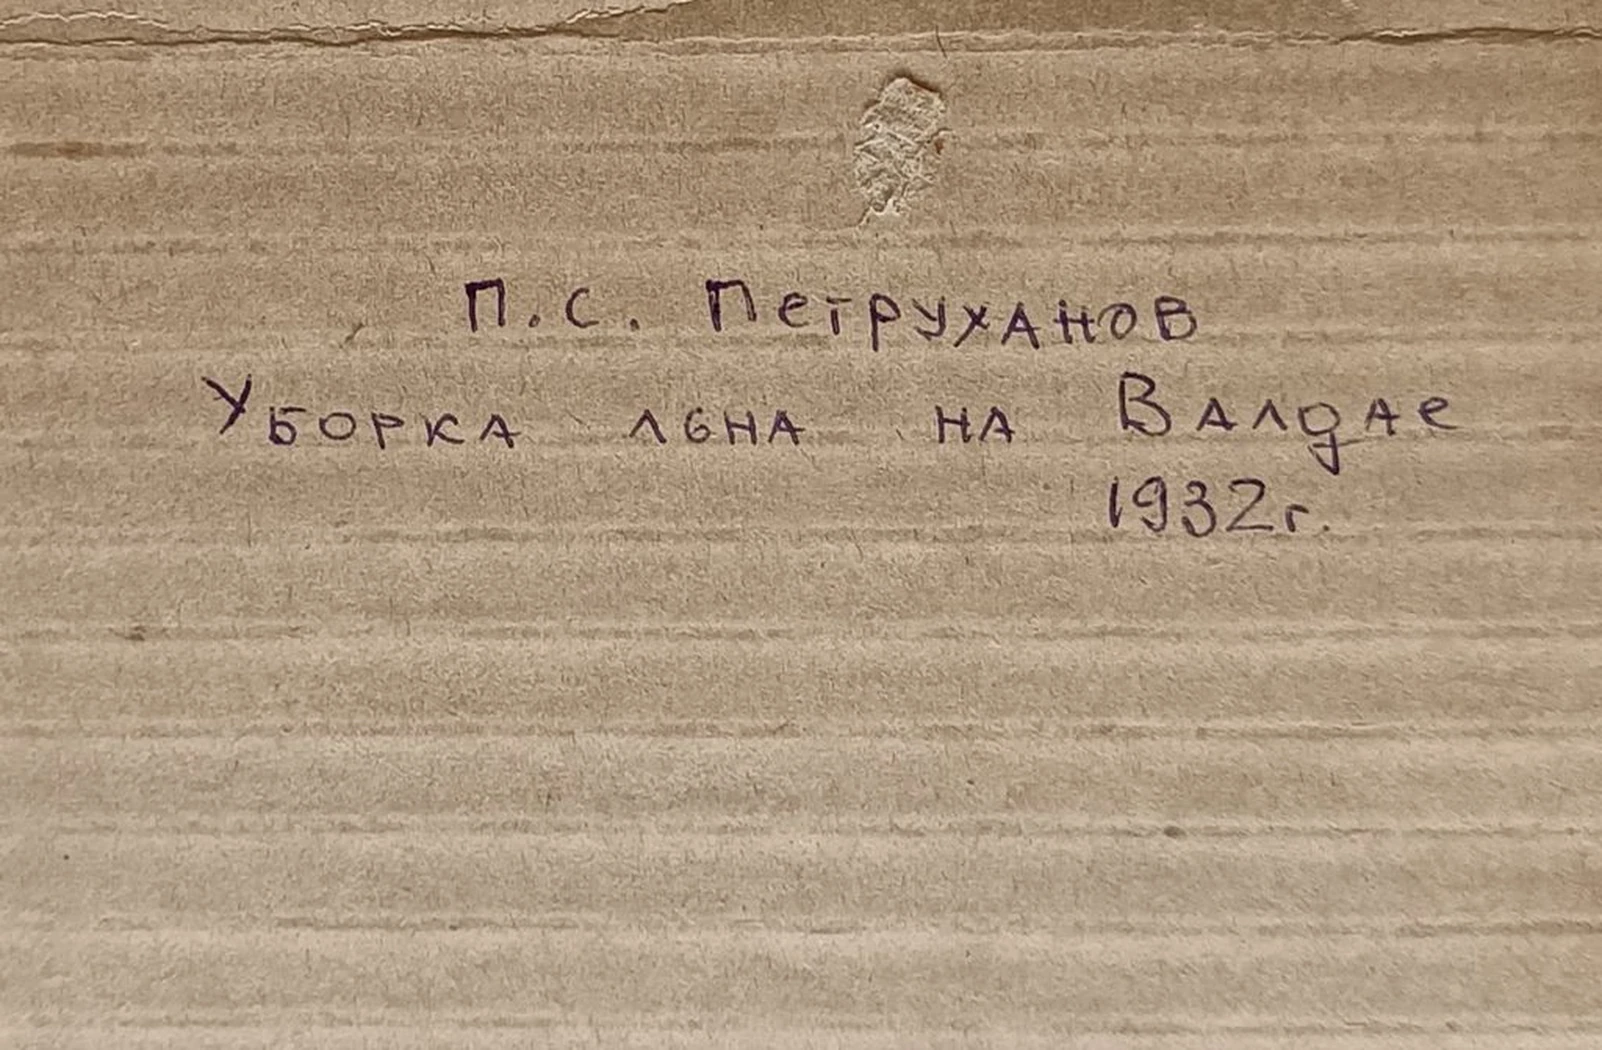 П.С. Петруханов
Уборка лёна на Валдае
1932г.